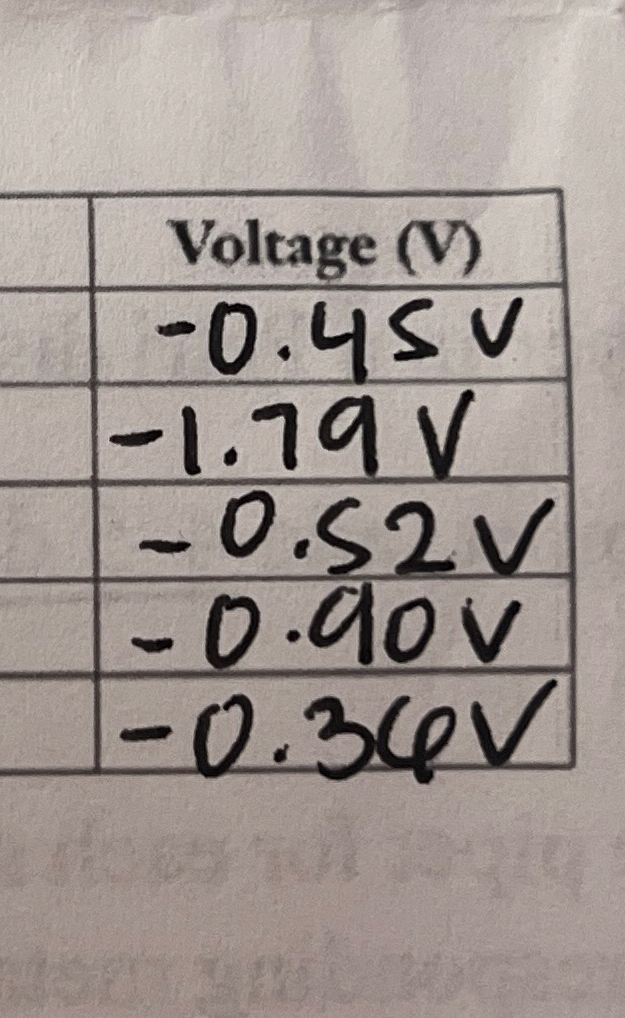 Voltage (V)
-0.45 V
-1.79 V
-0.52 V
-0.90 V
-0.36 V